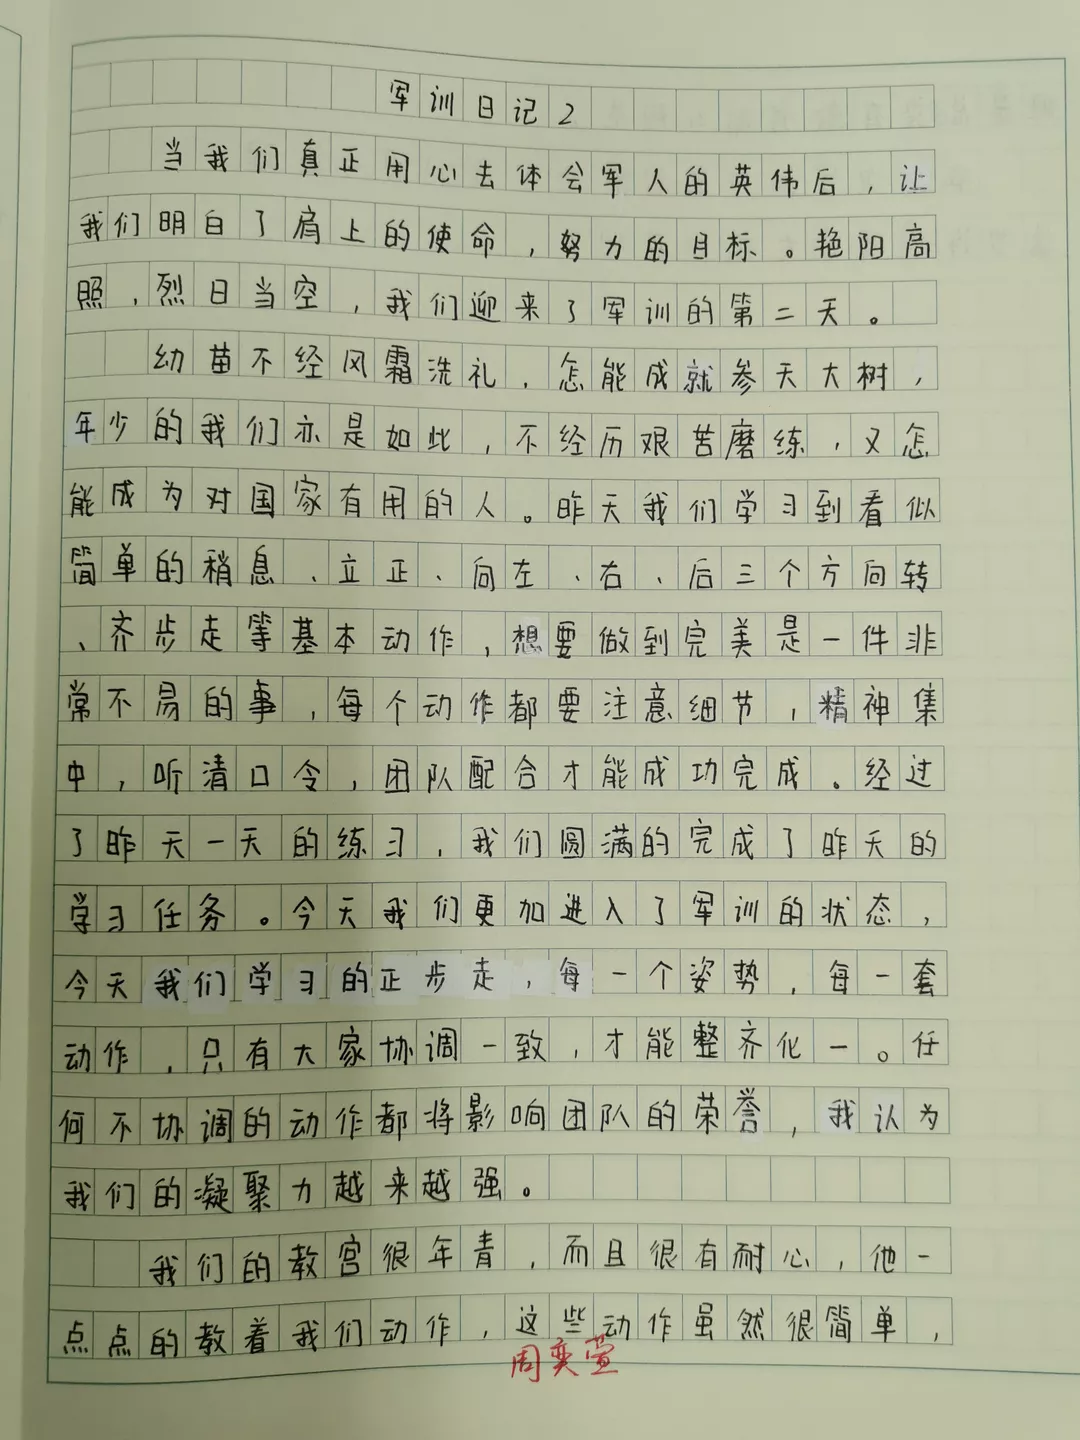 军训日记2
当我们真正用心去体会军人的英伟后，让
我们明白了肩上的使命，努力的目标。艳阳高
照，烈日当空，我们迎来了军训的第二天。
幼苗不经风霜洗礼，怎能成就参天大树，
年少的我们亦是如此，不经历艰苦磨练，又怎
能成为对国家有用的人。昨天我们学习到看似
简单的稍息、立正、向左、右、后三个方向转
、齐步走等基本动作，想要做到完美是一件非
常不易的事，每个动作都要注意细节，精神集
中，听清口令，团队配合才能成功完成。经过
了昨天一天的练习，我们圆满的完成了昨天的
学习任务。今天我们更加进入了军训的状态，
今天我们学习的正步走，每一个姿势，每一套
动作，只有大家协调一致，才能整齐化一。任
何不协调的动作都将影响团队的荣誉，我认为
我们的凝聚力越来越强。
我们的教官很年青，而且很有耐心，他一
点点的教着我们动作，这些动作虽然很简单，
周奕萱